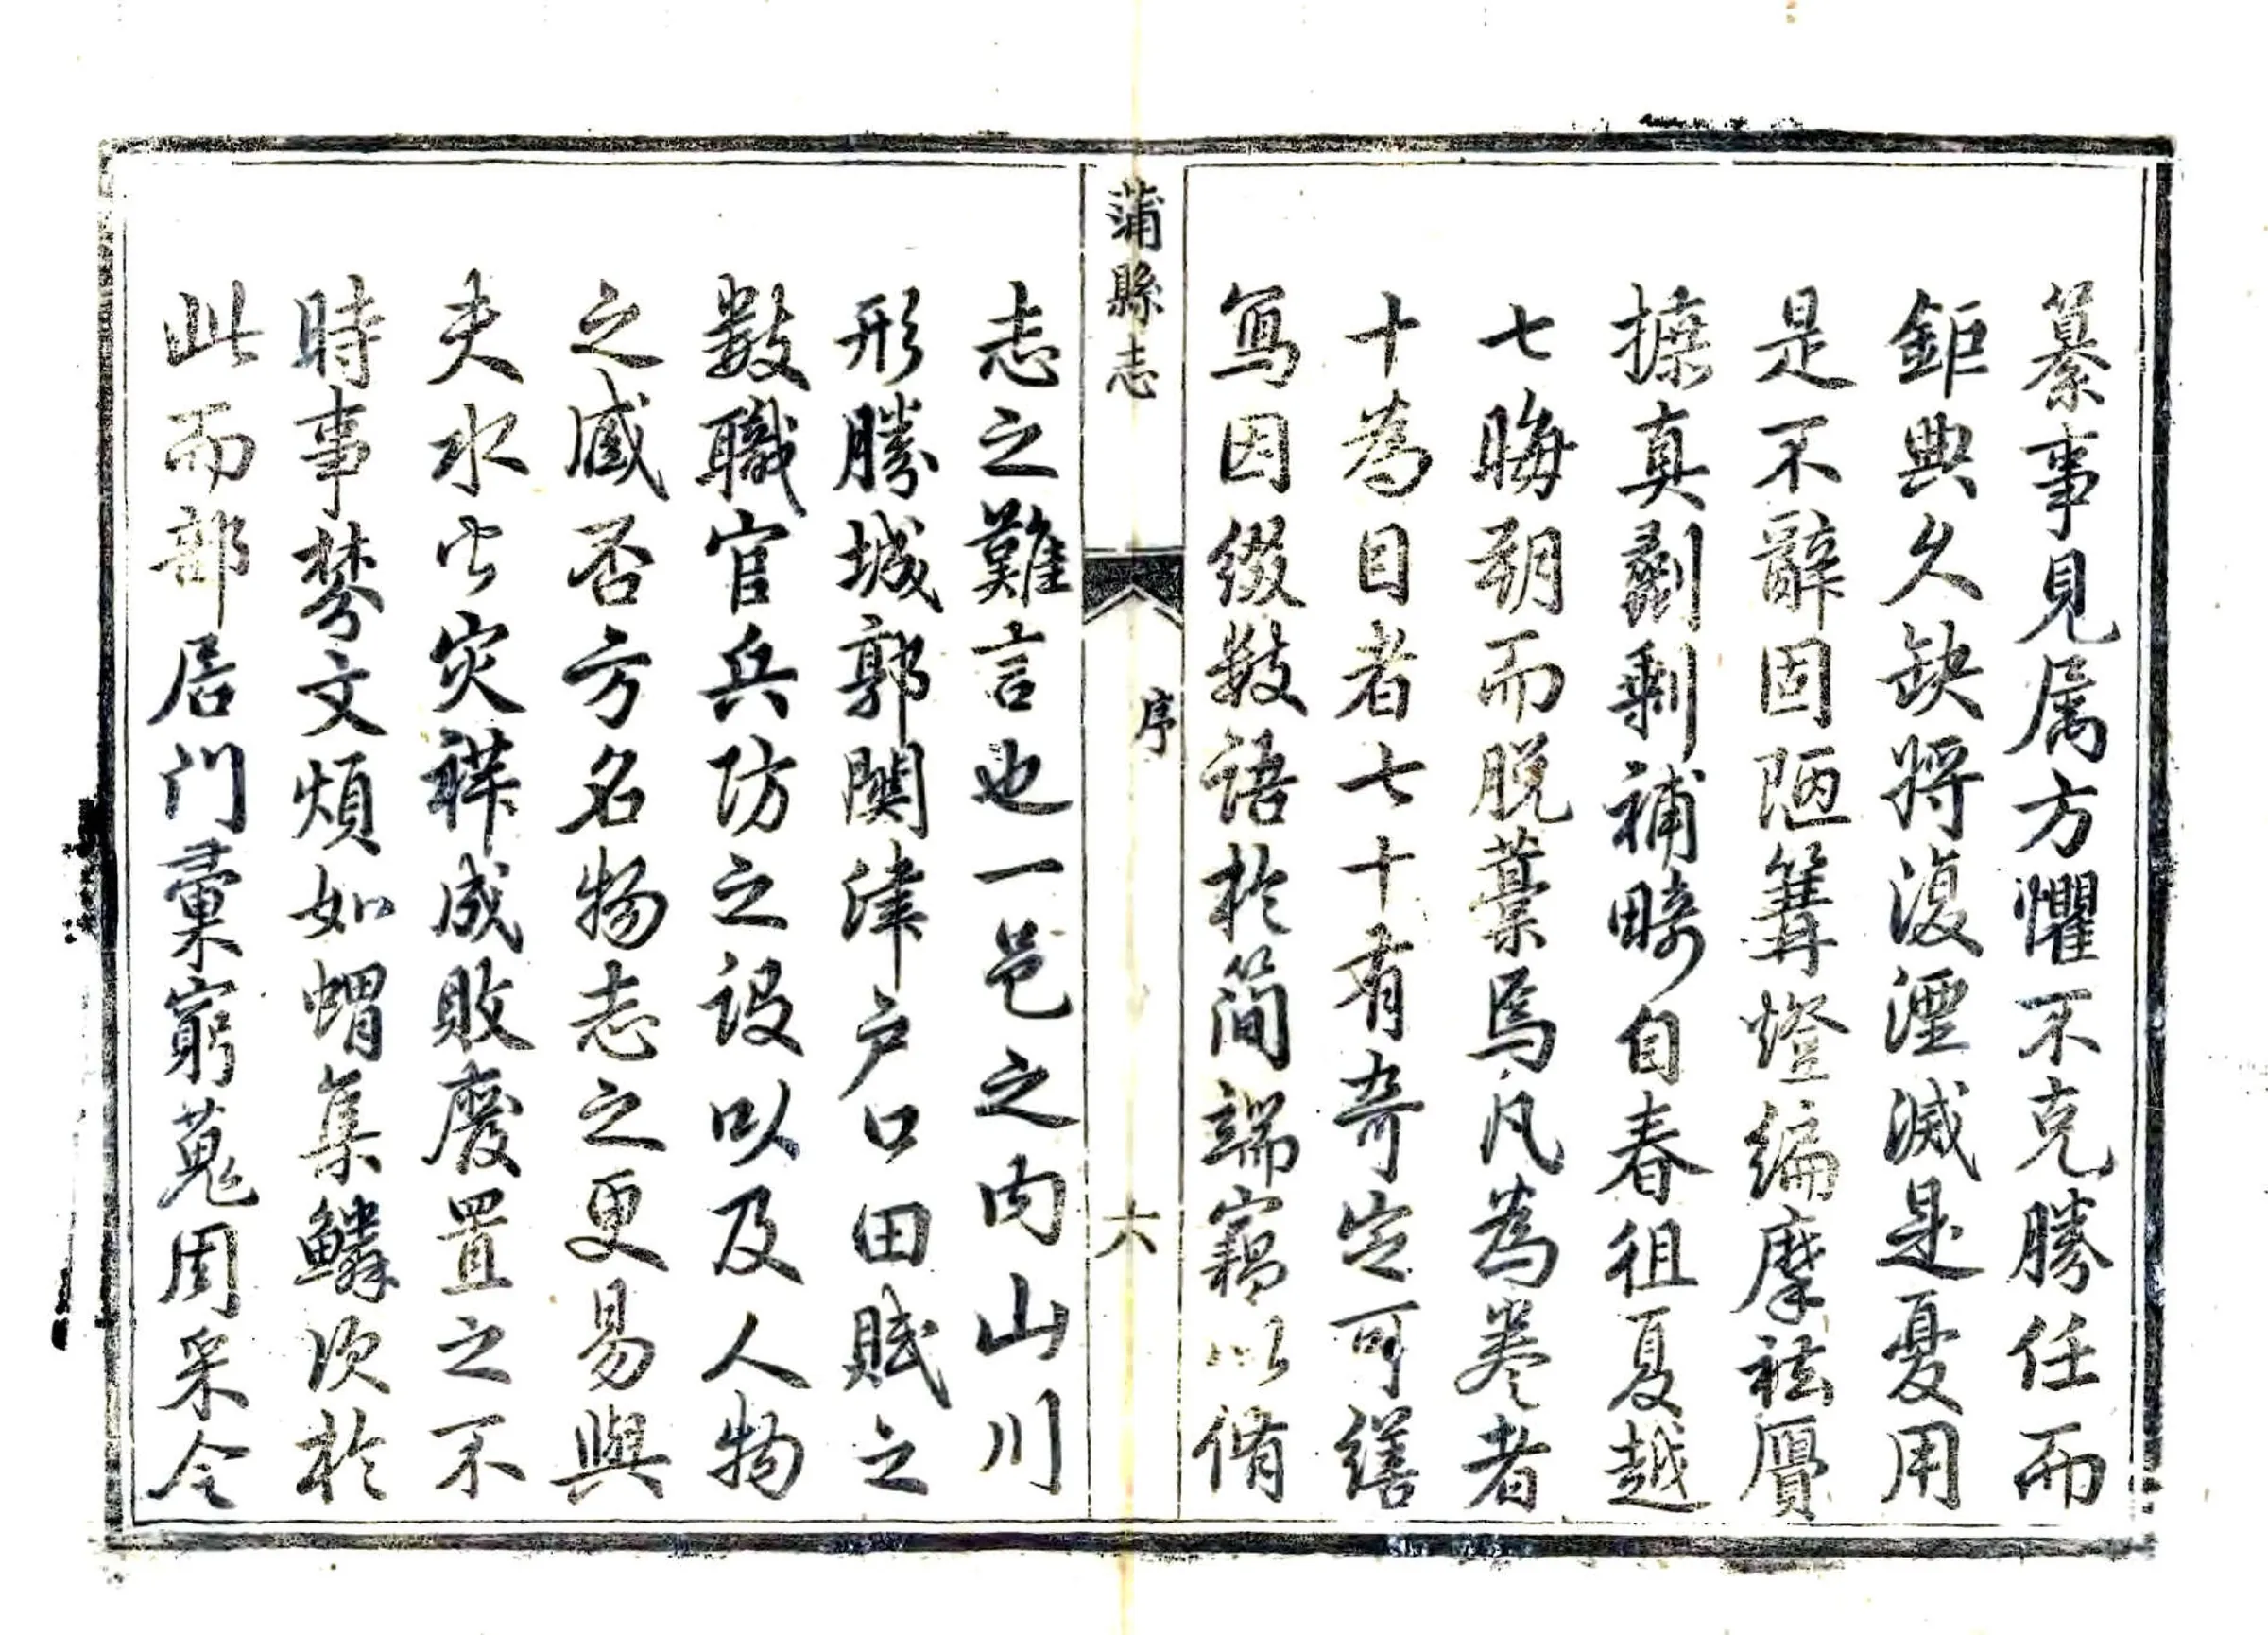 纂事見属方懼不克勝任而
鉅典久缺將復湮滅是憂用
是不辭固陋篝燈編摩袪贋
摭真剷剩補畸自春徂夏越
七晦朔而脱藁焉凡為卷者
十為目者七十有奇定可繕
寫因綴數語於簡端竊以脩
蒲縣志
序
六
志之難言也一邑之内山川
形勝城郭関津户口田賦之
數職官兵防之設以及人物
之臧否方名物志之更易與
夫水火灾祥成敗廢置之不
時事棼文煩如蝟集鱗次於
此而部居门彙窮蒐周采令